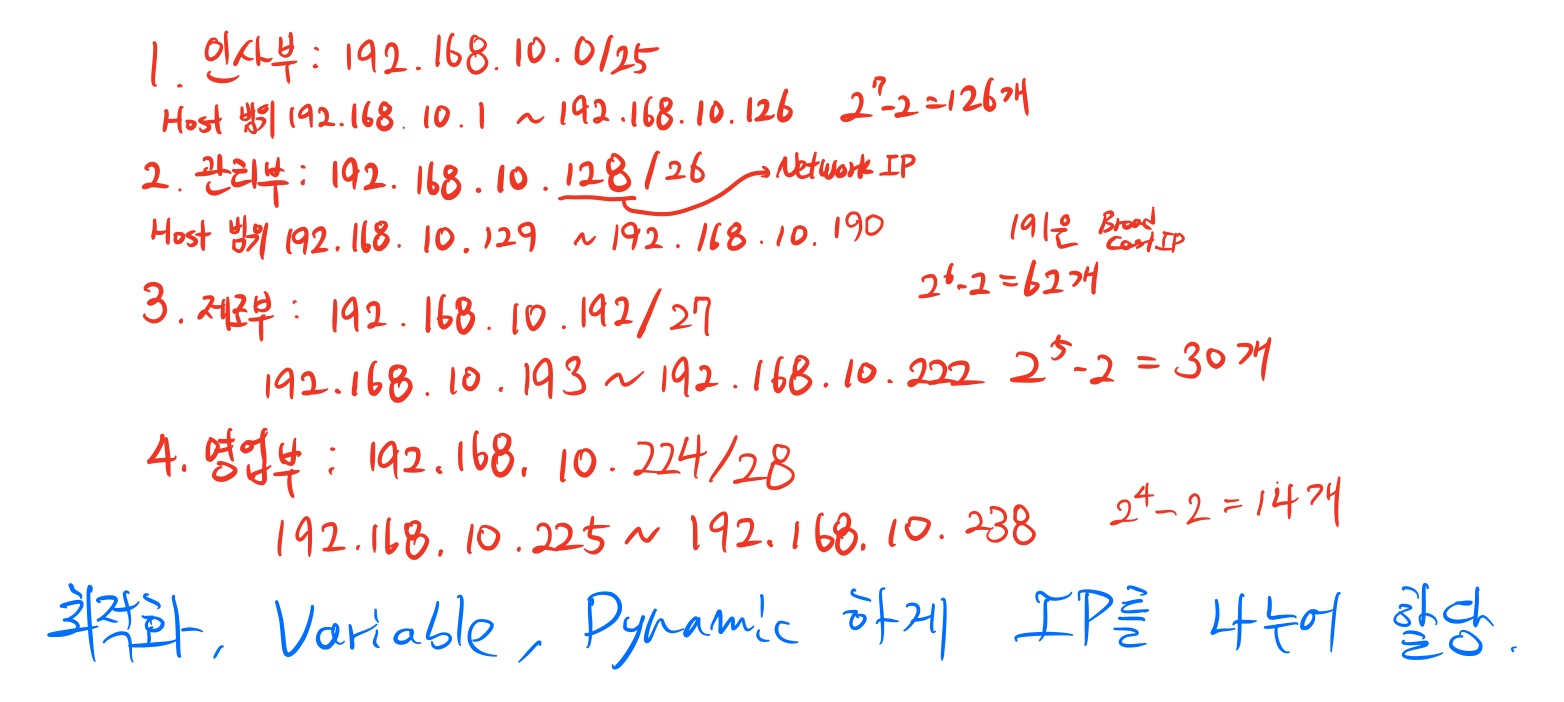 1. 인사부 : 192.168.10.0/25
Host 범위 192.168.10.1 ~ 192.168.10.126 2⁷-2=126개
2. 관리부 : 192.168.10.128/26 → Network IP
Host 범위 192.168.10.129 ~ 192.168.10.190 191은 Broad Cast IP
2⁶-2=62개
3. 제조부 : 192.168.10.192/27
192.168.10.193 ~ 192.168.10.222 2⁵-2 = 30개
4. 영업부 : 192.168.10.224/28
192.168.10.225 ~ 192.168.10.238 2⁴-2=14개
최적화, Variable, Dynamic 하게 IP를 나누어 할당.